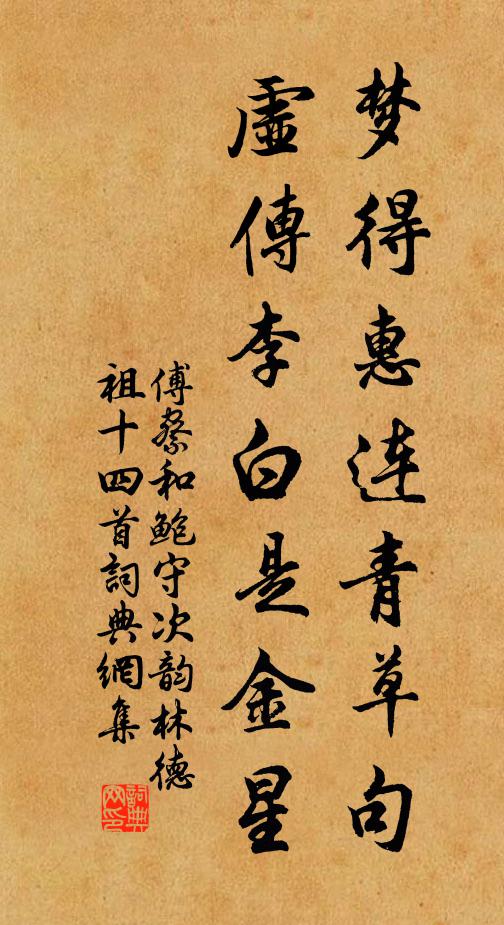 梦得惠连青草句
虚傳李白是金星
傅察和鲍守次韵林德
祖十四首詞典網集
詞典网印